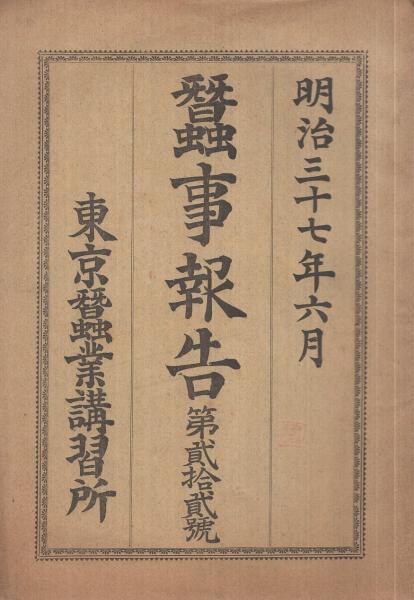 明治三十七年六月
蠶事報告第貳拾貳號
東京蠶業講習所